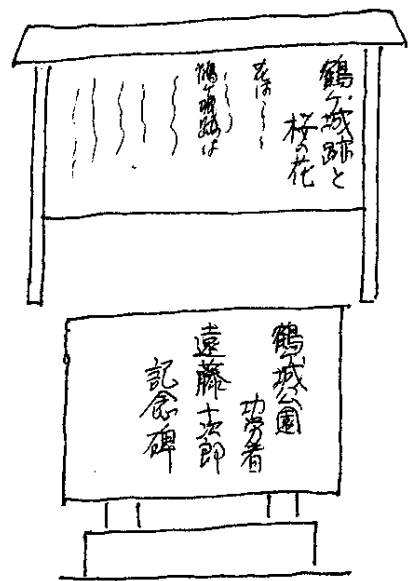 鶴ヶ城跡と
桜の花
花は
鶴ヶ城跡は
鶴ヶ城公園
功労者
遠藤十次郎
記念碑